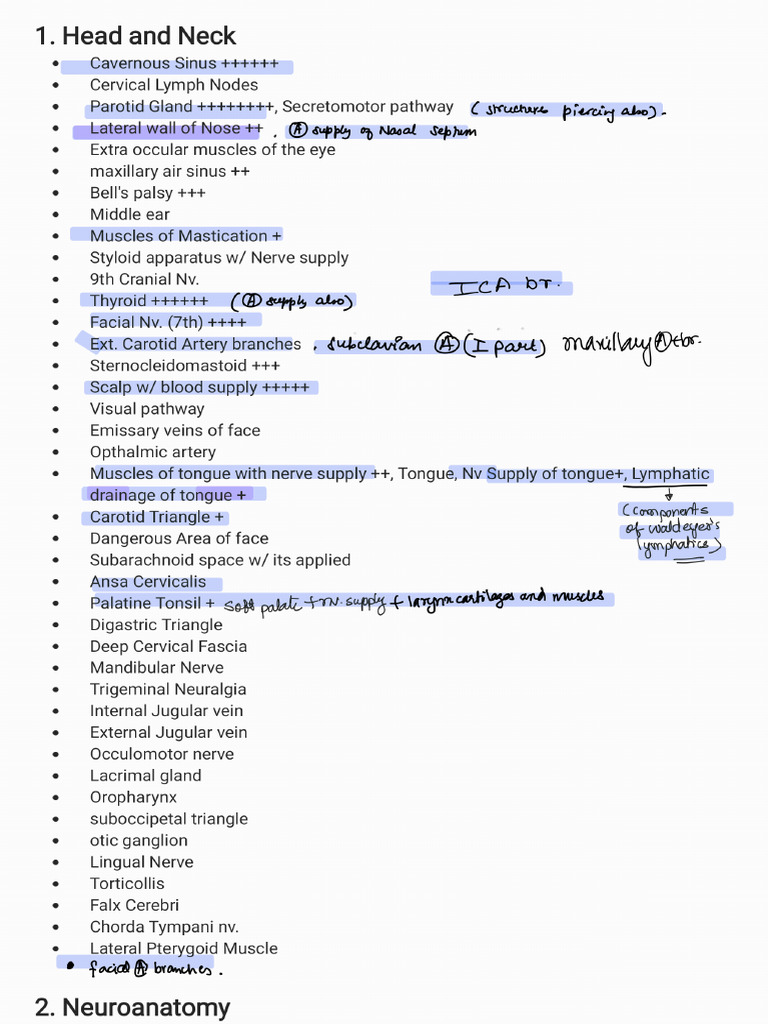 1. Head and Neck
• Cavernous Sinus ++++++
• Cervical Lymph Nodes
• Parotid Gland ++++++++, Secretomotor pathway (structures piercing also).
• Lateral wall of Nose ++ , Ⓐ supply of Nasal Septum
• Extra occular muscles of the eye
• maxillary air sinus ++
• Bell's palsy +++
• Middle ear
• Muscles of Mastication +
• Styloid apparatus w/ Nerve supply
• 9th Cranial Nv.
ICA br.
• Thyroid ++++++ (Ⓐ supply also)
• Facial Nv. (7th) ++++
• Ext. Carotid Artery branches , subclavian Ⓐ (I part) maxillary Ⓐ +br.
• Sternocleidomastoid +++
• Scalp w/ blood supply +++++
• Visual pathway
• Emissary veins of face
• Opthalmic artery
• Muscles of tongue with nerve supply ++, Tongue, Nv Supply of tongue+, Lymphatic
drainage of tongue +
(components
of waldeyer's
lymphatics)
• Carotid Triangle +
• Dangerous Area of face
• Subarachnoid space w/ its applied
• Ansa Cervicalis
• Palatine Tonsil + Soft palate + nv. supply + larynx cartilages and muscles
• Digastric Triangle
• Deep Cervical Fascia
• Mandibular Nerve
• Trigeminal Neuralgia
• Internal Jugular vein
• External Jugular vein
• Occulomotor nerve
• Lacrimal gland
• Oropharynx
• suboccipetal triangle
• otic ganglion
• Lingual Nerve
• Torticollis
• Falx Cerebri
• Chorda Tympani nv.
• Lateral Pterygoid Muscle
• facial Ⓐ branches.
2. Neuroanatomy